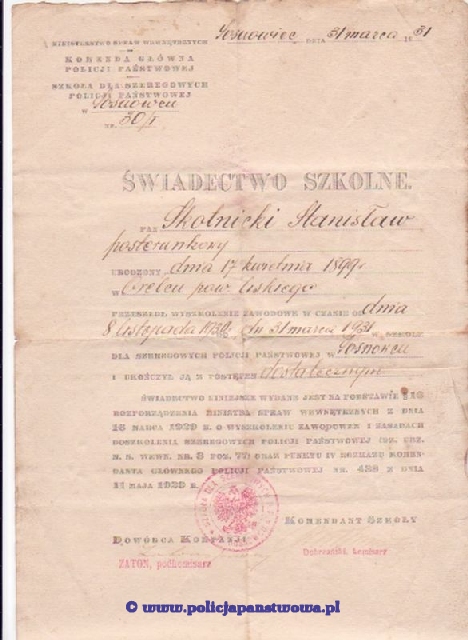 Sosnowiec, DNIA 31 marca 1931
MINISTERSTWO SPRAW WEWNĘTRZNYCH
KOMENDA GŁÓWNA
POLICJI PAŃSTWOWEJ
SZKOŁA DLA SZEREGOWYCH
POLICJI PAŃSTWOWEJ
W Sosnowcu
NR. 50/I
ŚWIADECTWO SZKOLNE.
PAN Skolnicki Stanisław
posterunkowy
URODZONY dnia 17 kwietnia 1899 r.
W pow. Liskiego
PRZESZEDŁ WYSZKOLENIE ZAWODOWE W CZASIE OD dnia
8 listopada do 31 marca 1931 W SZKOLE
DLA SZEREGOWYCH POLICJI PAŃSTWOWEJ W Sosnowcu
I UKOŃCZYŁ JĄ Z POSTĘPEM dostatecznym
ŚWIADECTWO NINIEJSZE WYDANE JEST NA PODSTAWIE § 18
ROZPORZĄDZENIA MINISTRA SPRAW WEWNĘTRZNYCH Z DNIA
16 MARCA 1929 O WYSZKOLENIU ZAWODOWEM I ZASADACH
DOSZKOLENIA SZEREGOWYCH POLICJI PAŃSTWOWEJ (DZ. URZ.
M. S. WEWN. NR. 8 POZ. 77) ORAZ PUNKTU IV ROZKAZU KOMEN-
DANTA GŁÓWNEGO POLICJI PAŃSTWOWEJ NR. 438 Z DNIA
11 MAJA 1929 R.
KOMENDANT SZKOŁY
DOWÓDCA KOMPANJI
ZATOŃ, podkomisarz
Dobrzański, komisarz
© www.policjapanstwowa.pl